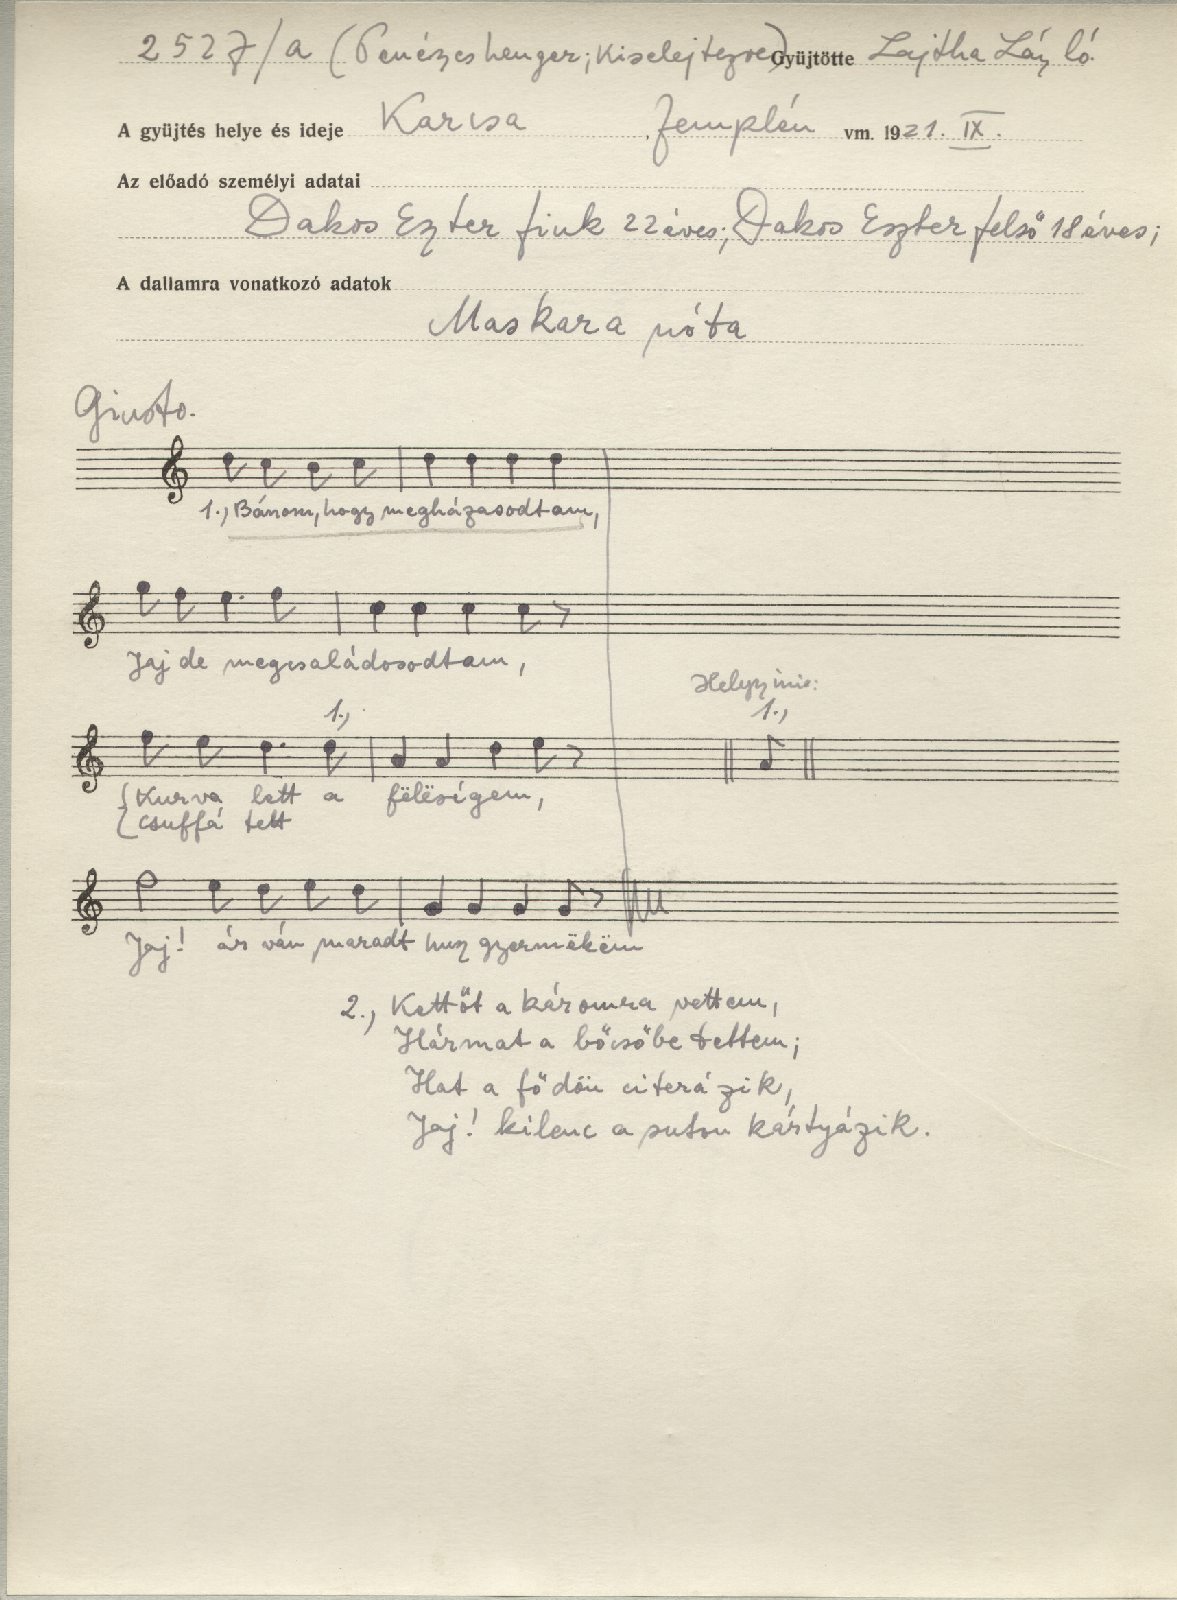 2527/a (Penészes henger; Kiselejtezve) Gyüjtötte Lajtha László.
A gyüjtés helye és ideje Karcsa, Zemplén vm. 1921. IX.
Az előadó személyi adatai
Dakos Eszter fiuk 22 éves; Dakos Eszter felső 18 éves;
A dallamra vonatkozó adatok
Maskara nóta
Giusto.
1., Bánom, hogy megházasodtam,
Jaj de megcsaládosodtam,
Helyzinis:
1., 1.,
Kurva lett a fëlësígem,
csuffá tett
Jaj! árván maradt husz gyermëkëm
2., Kettőt a káromra vettem,
Hármat a bőcsőbe tettem;
Hat a fődön citerázik,
Jaj! kilenc a suton kártyázik.